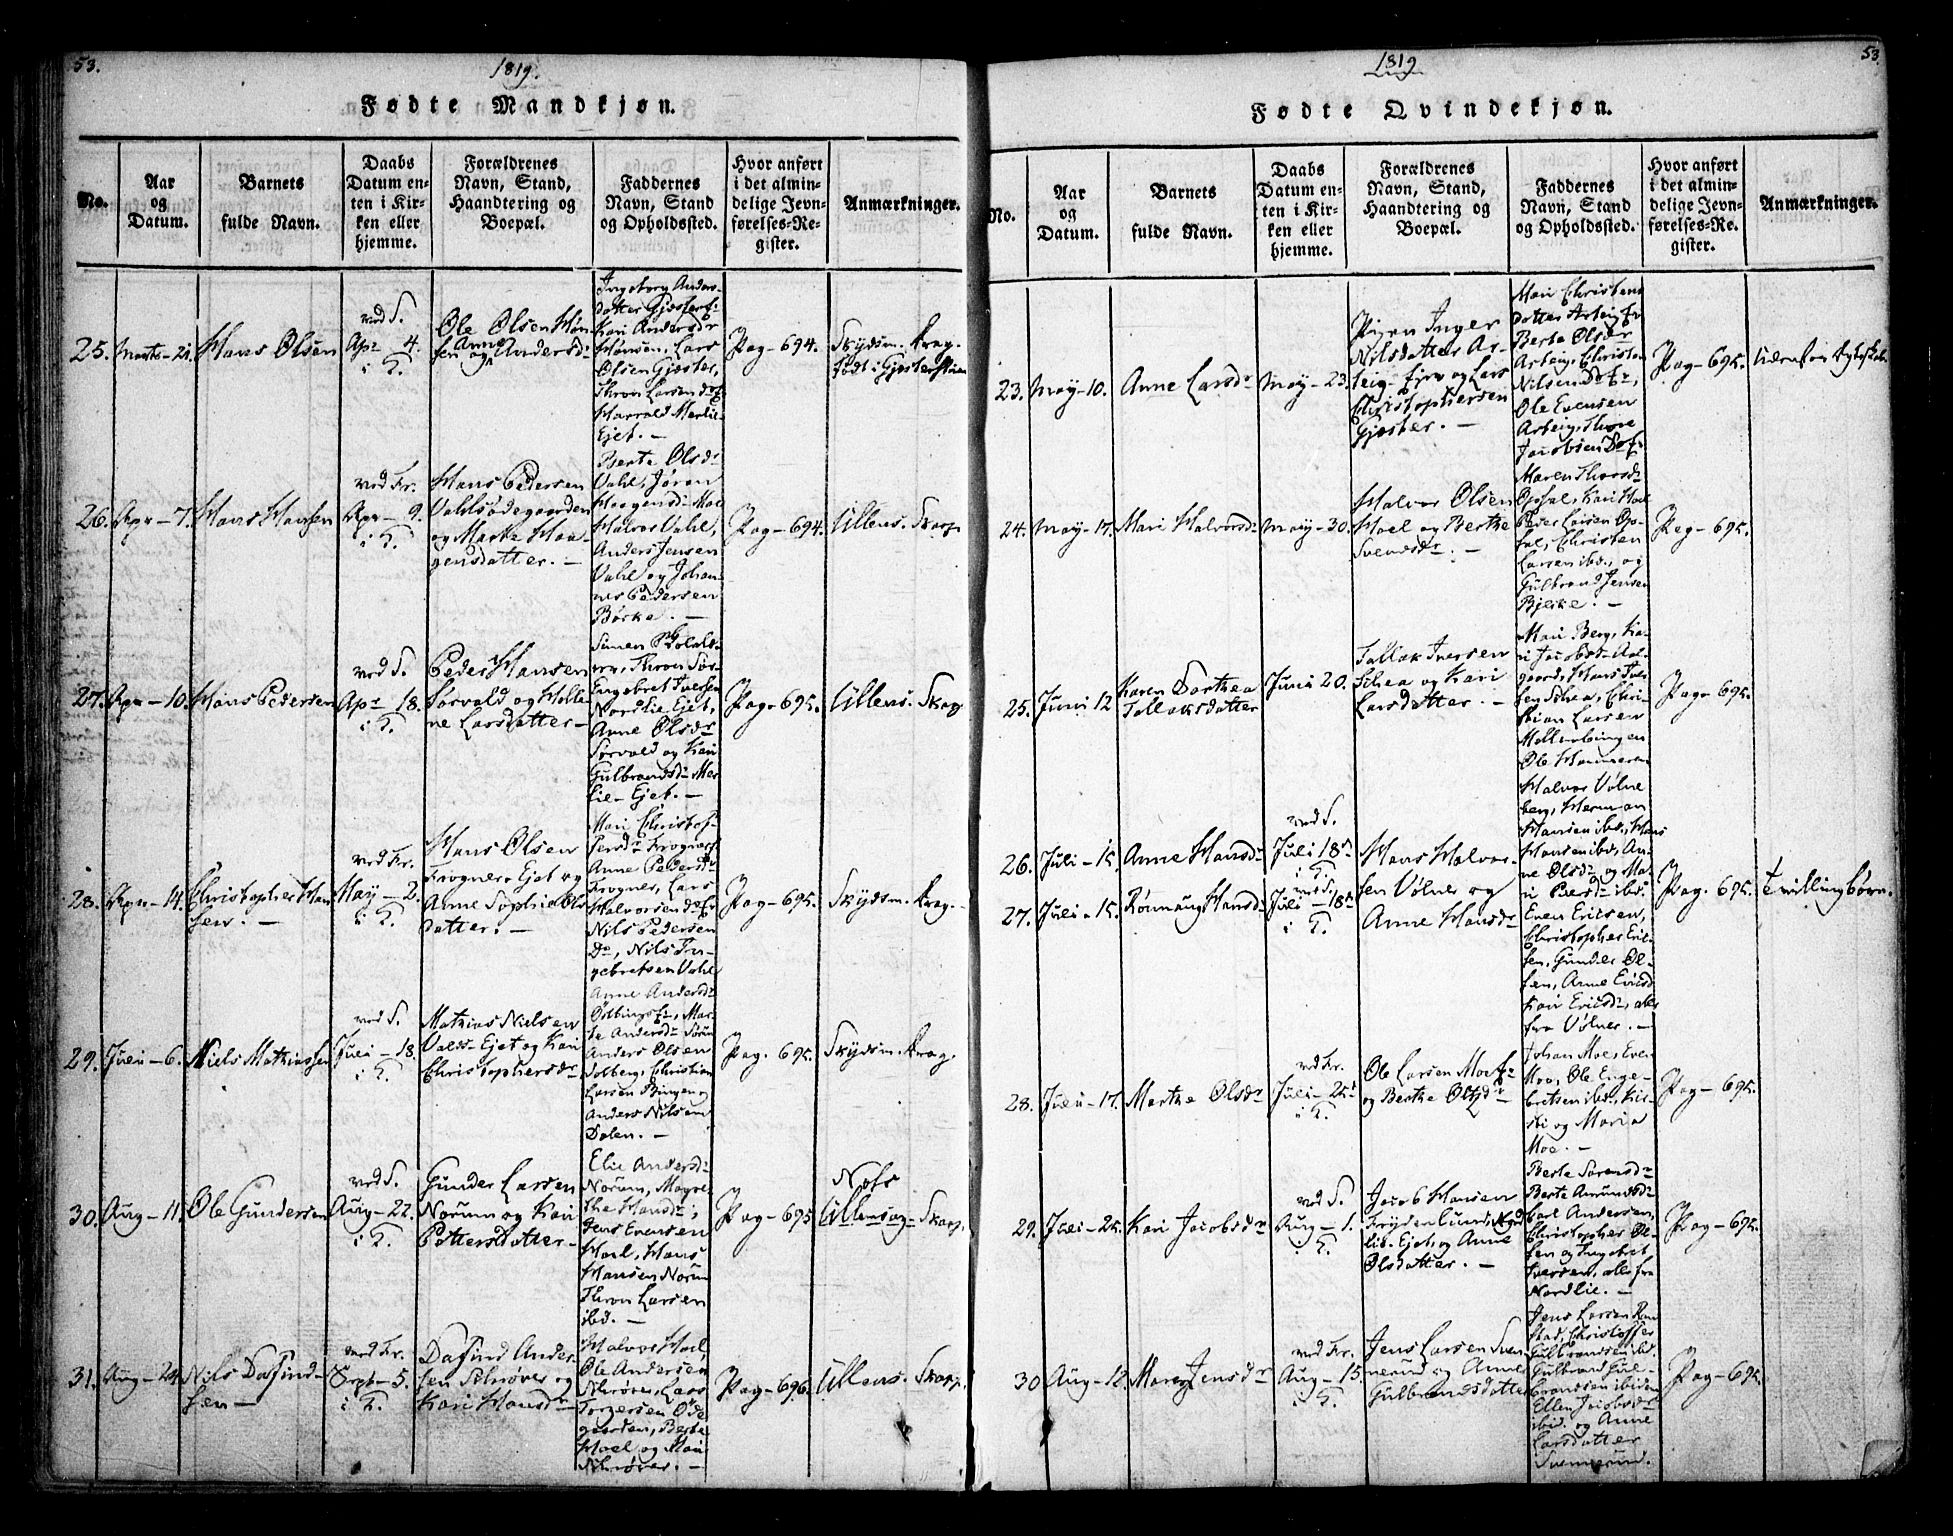 53.
1819.
Fødte Mandkjøn.
No.
Aar
og
Datum.
Barnets
fulde Navn.
Daabs
Datum en-
ten i Kir-
ken eller
hjemme.
Forældrenes
Navn, Stand,
Haandtering og
Boepæl.
Faddernes
Navn, Stand
og Opholdssted.
Hvor anført
i det almin-
delige Jevn-
førelses-Re-
gister.
Anmærkninger.
25.
Marts - 21.
Hans Olsen
Apr 4.
Ole Olsen Høn-
sen og Anne Andersdr
Ingeborg Anders-
datter Gjester
Kari Andersdr
Hønsen, Lars
Olsen Gjester,
Thron Larsen
Harrald Merlie
Ejet. -
Pag - 694.
Skydsm. Krag.
Født i Gjester
26.
Apr - 7.
Hans Hansen
Apr - 9.
Hans Pedersen
Vahlsødegaarden
og Marte Haa-
gensdatter. -
Berte Olsdr
Vahl, Jøran
Haagensdr Moe
Halvor Vahl,
Anders Jensen
Vahl og Johan-
nes Pedersen
Børke. -
Pag - 694.
Ullens. Skarp.
27.
Apr - 10.
Hans Pedersen
Apr - 18.
Peder Hansen
Sørvald og Helle-
ne Larsdatter -
Engebret Iversen
Nordlie Ejet,
Anne Olsdr
Sørvald og Kari
Gulbrandsdr Mer-
lie - Ejet. -
Pag - 695.
Ullens. Skarp
28.
Apr - 14.
Christopher Han
sen. -
May - 2.
Hans Olsen
Krogner Ejet og
Anne Sophie Ols
datter. -
Mari Christof-
fersdr Krogner
Anne Pedersdr
Krogner, Lars
Halvorsen
Nils Pedersen
Do, Nils In-
gebretsen Vahl
Pag - 695.
Skydsm. Krag. -
29.
Juli - 6.
Niels Mathiassen
Juli - 18.
Mathias Nielsen
Valds - Ejet og Kari
Christophersdr
Anne Andersdr
Anders Olsen
Solberg, Christian
Larsen Bingen og
Anders Nilsen
Dalen. -
Pag. 695.
Skydsm. Krag.
30.
Aug - 11.
Ole Gundersen
Aug - 22.
Gunder Larsen
Norum og Kari
Pettersdatter -
Elie Andersdr
Norum, Magre-
the Hansdr,
Jens Evensen
Hoel, Hans
Hansen Norum
Thron Larsen
ibd. -
Pag - 695
Nots
Ullensag - Skarp.
31.
Aug - 24.
Nils Dafind-
sen -
Sept - 5.
Dafind Ander-
sen Selnøver og
Kari Hansdr -
Halvor Hoel,
Ole Andersen
Selnøver, Lars
Torgersen Øde
gaarden, Berte
Hoel og Mari
Selnøver. -
Pag - 696.
Ullens. Skarp.
53.
1819
Fødte Qvindekjøn.
No.
Aar
og
Datum.
Barnets
fulde Navn.
Daabs
Datum en-
ten i Kir-
ken eller
hjemme.
Forældrenes
Navn, Stand,
Haandtering og
Boepæl.
Faddernes
Navn, Stand
og Opholdssted.
Hvor anført
i det almin-
delige Jevn-
førelses-Re-
gister.
Anmærkninger.
23.
May - 10.
Anne Larsdr
May - 23.
Pigen Inger
Nilsdatter Ar-
teig - Eje og Lars
Christophersen
Gjester. -
Mari Christens
datter Arteig
Berte Olsdr
Arteig, Christen
Nilsen
Ole Evensen
Arteig, Thore
Jacobsen
Pag - 695.
24.
May - 17.
Mari Halvorsdr
May - 30.
Halvor Olsen
Hoel og Berthe
Svensdr. -
Maren Thorsdr
Opsal, Kari Hoel
Peder Larsen Op-
sal, Christen
Larsen ibd., og
Gulbrand Jensen
Bjerke. -
Pag - 695.
25.
Juni 12
Karen Dorthea
Tallaksdatter
Juni 20.
Tallak Iversen
Schea og Kari
Larsdatter. -
Mari Berg, Ka-
ri Jacobsdr Aal-
gaard, Hans Iver-
sen Schea, Chri-
stian Larsen
Mellerløingen
Ole Hammeren
Pag - 695.
26.
Juli - 15.
Anne Hansdr
Juli 18.
27.
Juli - 15.
Rønnaug Hansdr
Juli - 18.
Hans Halvor-
sen Vølner og
Anne Hansdr
Halvor Vølne
berg, Herman
Hansen ibd., Hans
Hansen ibd., An-
ne Olsdr og Ma-
ri Peersdr ibd.
Even Ericsen,
Christopher Eric-
sen, Gunder Ol-
sen, Anne Ericsdr
Kari Ericsdr, alle
fra Vølner. -
Pag. 695.
Tvillingbørn.
28.
Juli - 17.
Marthe Olsdr
Juli - 25.
Ole Larsen Moe
og Berthe Olsdr
Johan Moe, Even
Moe, Ole Enge-
bretsen ibd., Kir-
sti og Maria
Moe. -
Pag - 695.
29.
Juli - 25.
Kari Jacobsdr
Aug - 1.
Jacob Hansen
Frydenlund, Nord
lie - Ejet, og Anne
Olsdatter. -
Berte Sørensdr
Berte Amundsdr
Carl Andersen,
Christopher Ol-
sen og Ingebret
Iversen, alle fra
Nordlie. -
Pag - 695.
30
Aug - 12.
Maren Jensdr
Aug - 15
Jens Larsen Sven
nerud og Anne
Gulbrandsdatter
Jens Larsen Ram
stad, Christoffer
Gulbrandsen ibd.
Gulbrand Gul-
brandsen ibidem
Ellen Jacobsdr
ibid. og Anne
Larsdatter
Svennerud.
Pag - 695.